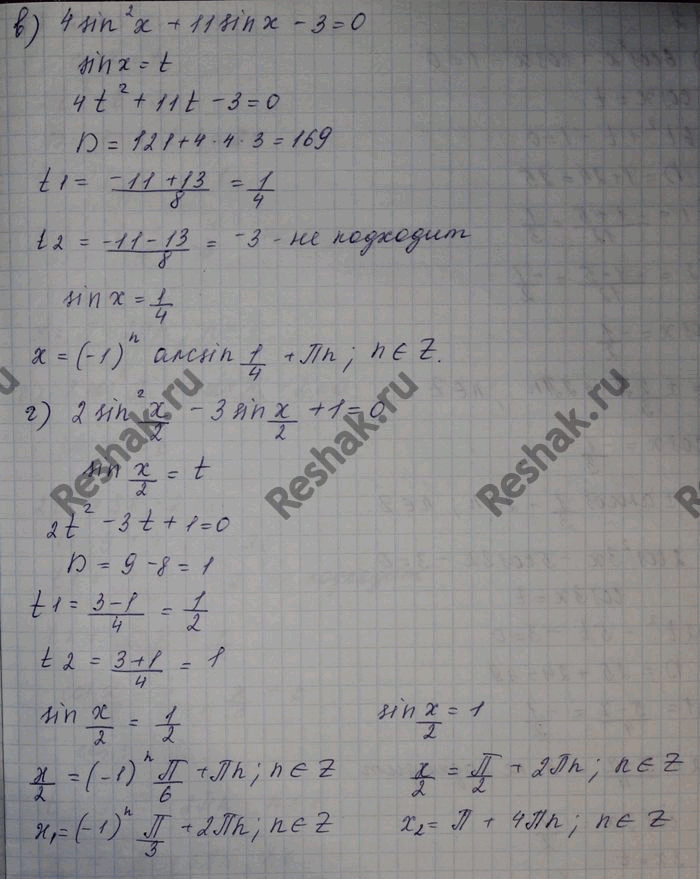 в) 4 sin²x + 11 sin x - 3 = 0
sin x = t
4t² + 11t - 3 = 0
D = 121 + 4 · 4 · 3 = 169
t1 = (-11 + 13)/8 = 1/4
t2 = (-11 - 13)/8 = -3 - не подходит
sin x = 1/4
x = (-1)ⁿ arcsin 1/4 + Пn; n ∈ Z.
г) 2 sin² x/2 - 3 sin x/2 + 1 = 0
sin x/2 = t
2t² - 3t + 1 = 0
D = 9 - 8 = 1
t1 = (3 - 1)/4 = 1/2
t2 = (3 + 1)/4 = 1
sin x/2 = 1/2 sin x/2 = 1
x/2 = (-1)ⁿ П/6 + Пn; n ∈ Z x/2 = П/2 + 2Пn; n ∈ Z
x₁ = (-1)ⁿ П/3 + 2Пn; n ∈ Z x₂ = П + 4Пn; n ∈ Z
Reshak.ru
Reshak.ru
Reshak.ru